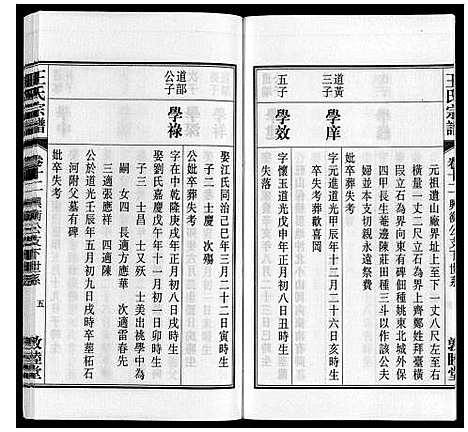 王氏宗譜
卷十二 興衡公支下世系
敦睦堂
元祖遺山廠界址上至下一丈八尺左至右
橫量一丈二尺立石為界上齊鄭姓拜臺橫
段立石為界向東有碑佃種姚東北城外保
四甲長生菴邊陳莊田種三斗以作該公夫
婦並本支初親永遠祭費
道黃三子
學庠
字元進道光甲辰年十二月二十六日亥時生
卒失考葬歡喜岡
五子
學效
字懷玉道光戊申年正月初八日丑時生
失落
王氏宗譜
卷十二 興衡公支下世系
五
敦睦堂
娶江氏同治己巳年三月二十二日寅時生
子二 士慶 次殤
道部公子
學祿
字在中乾隆庚戌年正月初八日戌時生
公妣卒葬失考
娶劉氏嘉慶戊午年十一月初一日卯時生
子三 士昌 士又殀 士美出祧學中為
嗣 女四 長適方應華 次適雷春先
三適張應祥 四適陳
公於道光壬辰年五月初九日戌時卒墓柘石
河附父墓有碑
妣卒失考